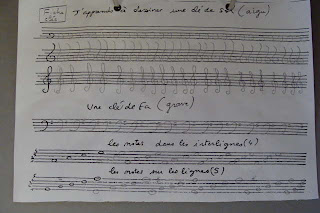 Fiche
J'apprends à dessiner une clé de Sol (aigu)
Une clé de Fa (grave)
les notes dans les interlignes (4)
les notes sur les lignes (5)